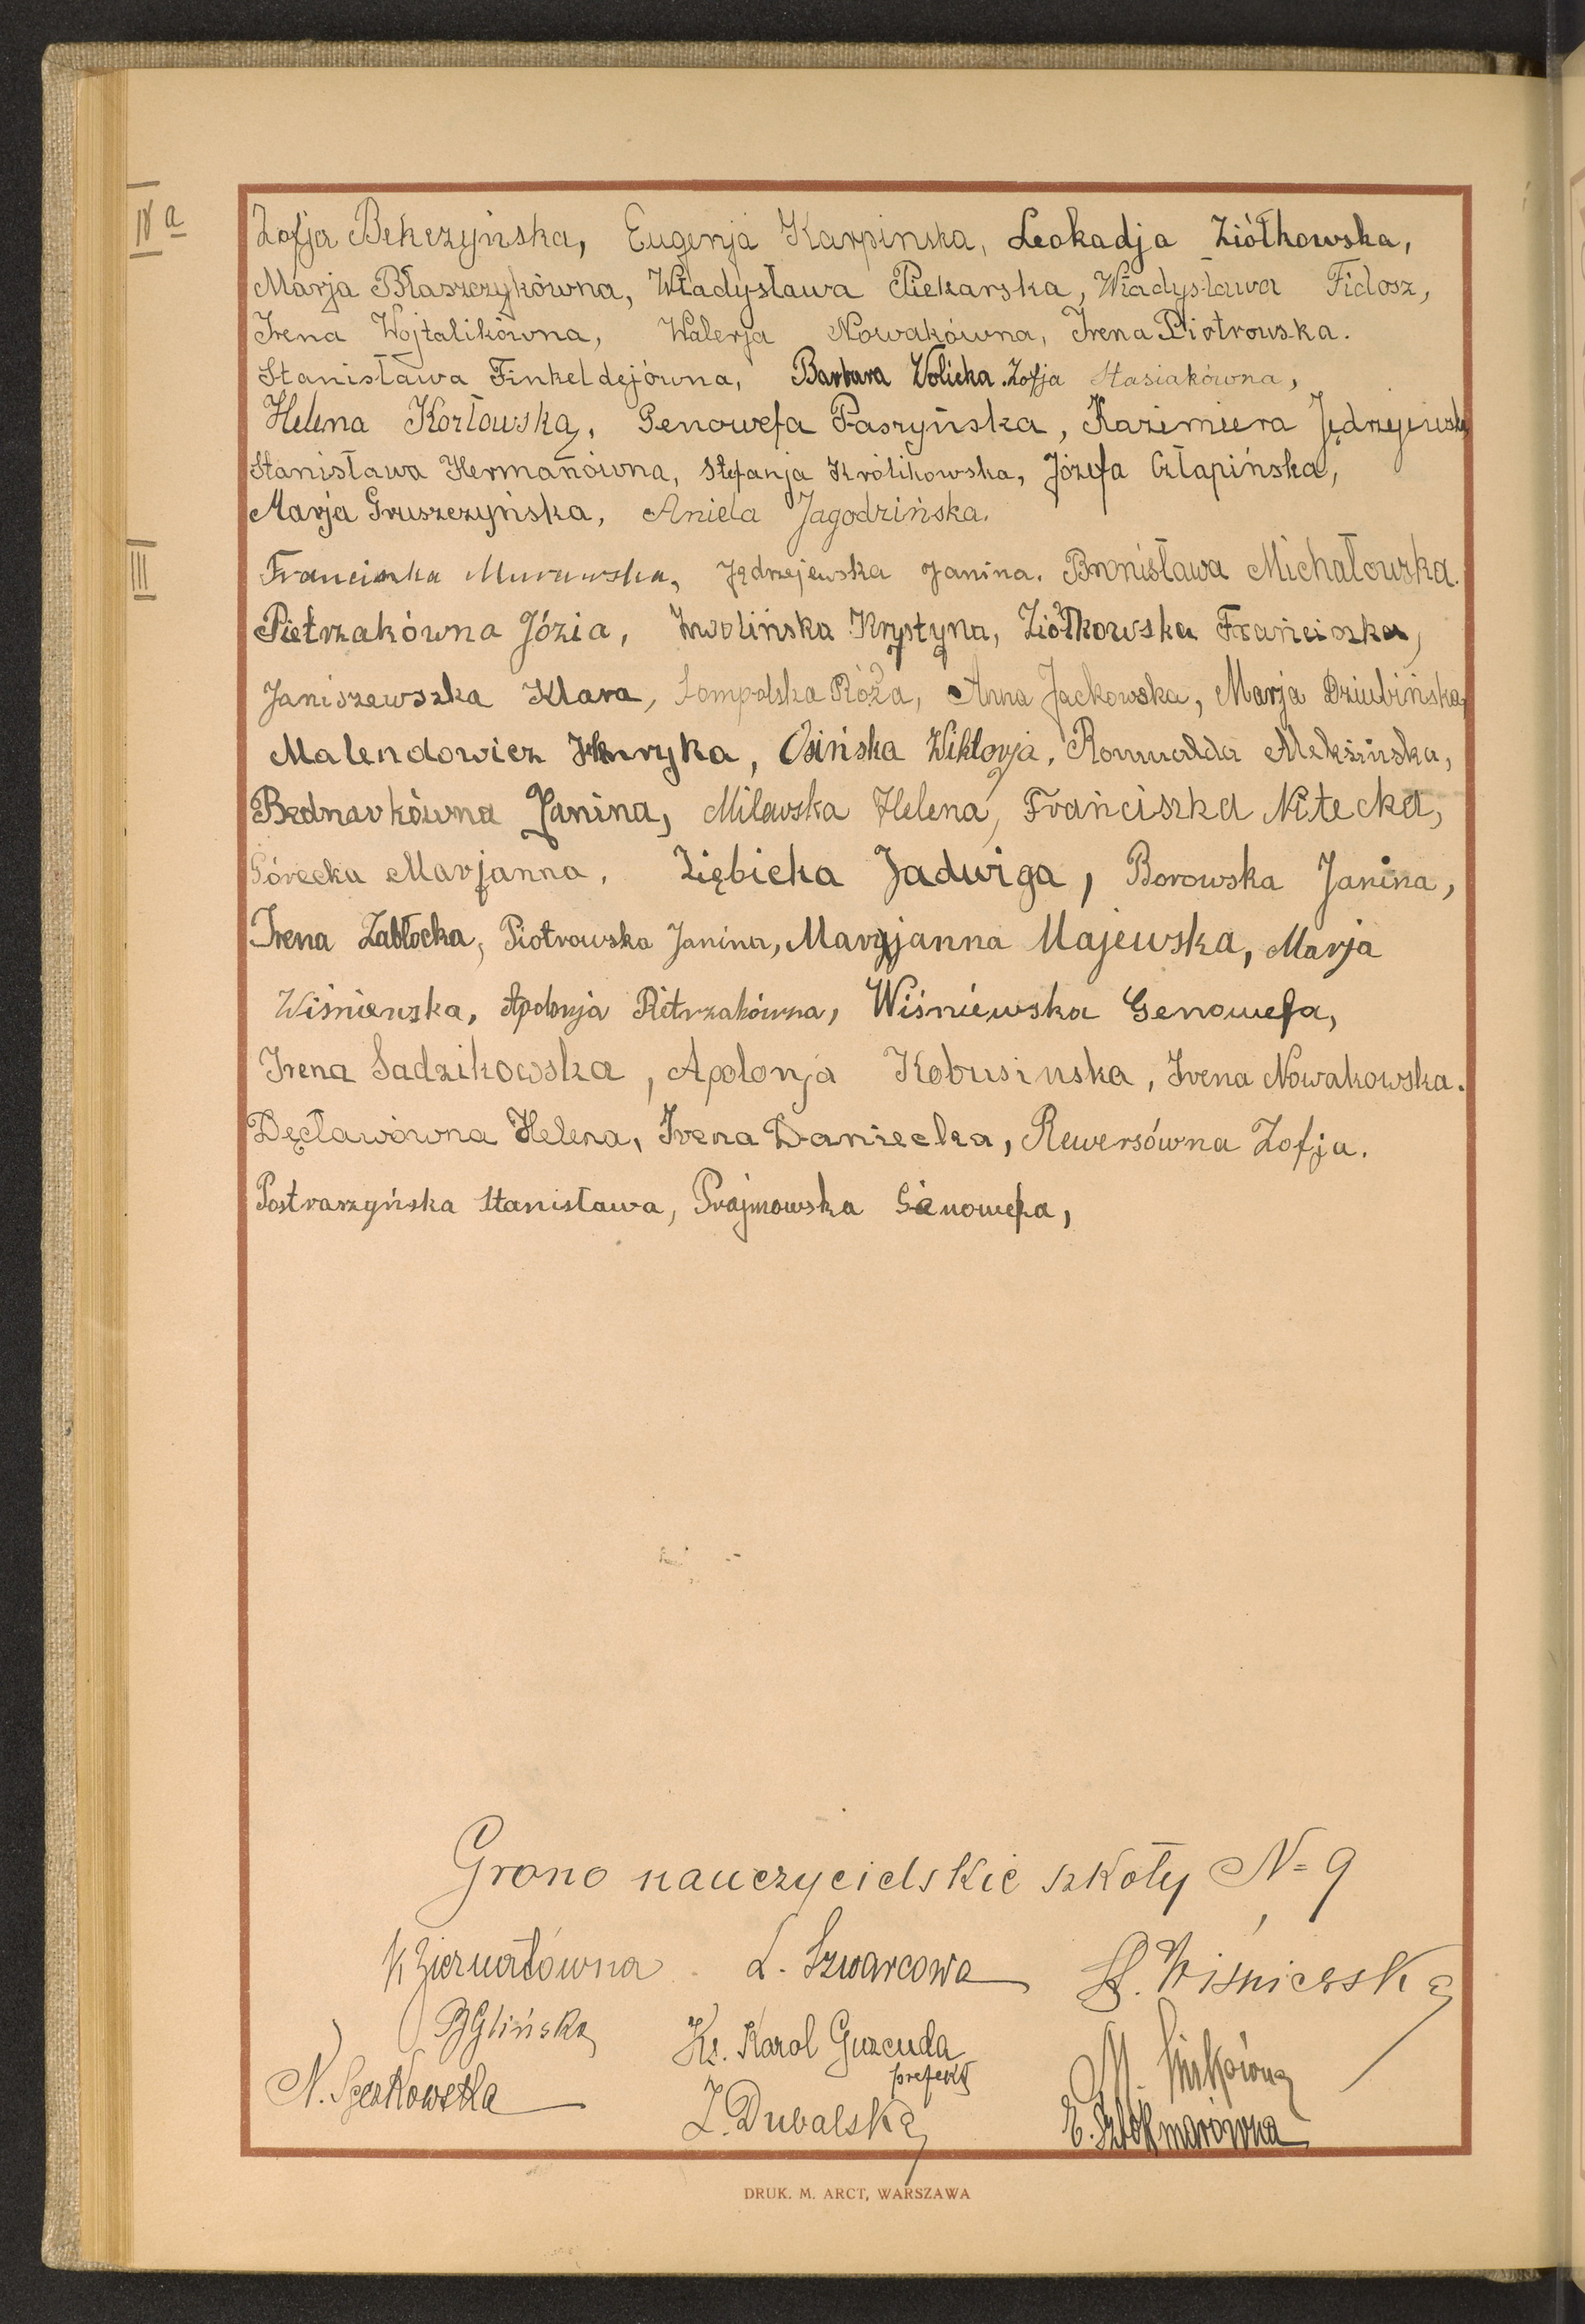 IV a
Zofja Bekczyńska, Eugenja Karpinska, Leokadja Ziółkowska,
Marja Błaszczykówna, Władysława Piekarska, Władysława Fidosz,
Irena Wojtalikówna, Walerja Nowakówna, Irena Piotrowska.
Stanisława Finkeldejówna, Barbara Wolicka. Zofja Stasiakówna,
Helena Kozłowska, Genowefa Paszyńska, Kazimiera Jędrzejewska
Stanisława Hermanówna, Stefanja Królikowska, Józefa Człapińska,
Marja Gruszczyńska, Aniela Jagodzińska.
III
Franciszka Murawska, Jędrzejewska Janina. Bronisława Michałowska.
Pietrzakówna Józia, Zwolińska Krystyna, Ziółkowska Franciszka,
Janiszewszka Klara, Sompolska Róża, Anna Jackowska, Marja Dziubińska,
Malendowicz Henryka, Osińska Wiktorja, Romualda Meksińska,
Bednarkówna Janina, Milewska Helena, Franciszka Nitecka,
Górecka Marjanna, Ziębicka Jadwiga, Borowska Janina,
Irena Zabłocka, Piotrowska Janina, Marjanna Majewska, Marja
Wiśniewska, Apolonja Pietrzakówna, Wiśniewska Genowefa,
Irena Sadzikowska, Apolonja Kobusinska, Irena Nowakowska.
Dęcławówna Helena, Irena Daniecka, Rewersówna Zofja.
Postrarzyńska Stanisława, Prajmowska Genowefa,
Grono nauczycielskie szkoły N= 9
K Biernatówna L. Szwarcowa St. Wiśniewska
B Glińska Ks. Karol Guzenda
prefekt
N. M.
Z. Dubalska E.
DRUK. M. ARCT, WARSZAWA